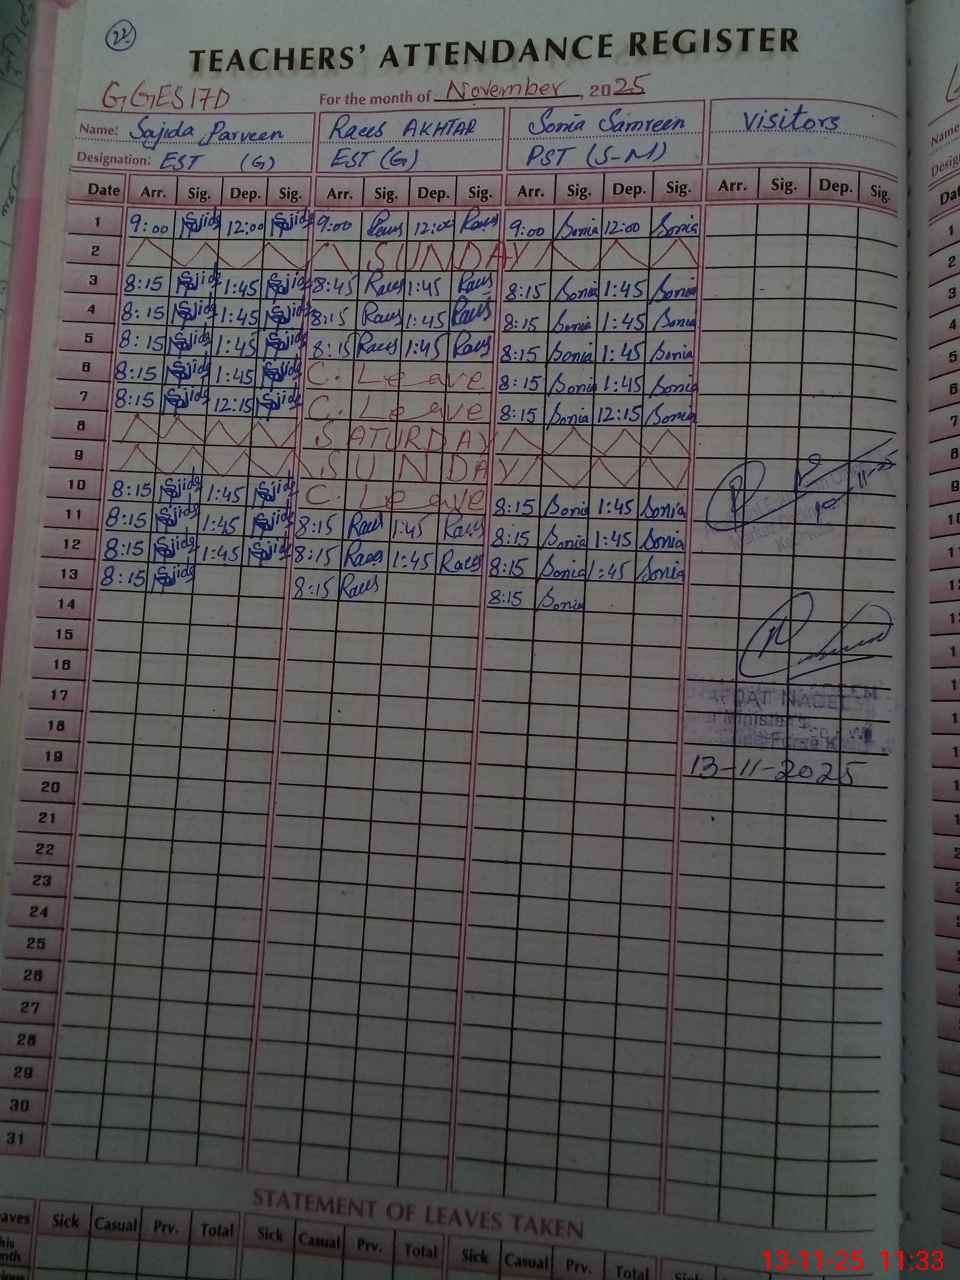 22
TEACHERS' ATTENDANCE REGISTER
GGES 17D For the month of November, 2025
Name: Sajida Parveen Raees AKHTAR Sonia Samreen Visitors
Designation: EST (G) EST (G) PST (S-M)
Date Arr. Sig. Dep. Sig. Arr. Sig. Dep. Sig. Arr. Sig. Dep. Sig. Arr. Sig. Dep. Sig.
1 9:00 Sajida 12:00 Sajida 9:00 Raees 12:00 Raees 9:00 Sonia 12:00 Sonia
2 SUNDAY
3 8:15 Sajida 1:45 Sajida 8:45 Raees 1:45 Raees 8:15 Sonia 1:45 Sonia
4 8:15 Sajida 1:45 Sajida 8:15 Raees 1:45 Raees 8:15 Sonia 1:45 Sonia
5 8:15 Sajida 1:45 Sajida 8:15 Raees 1:45 Raees 8:15 Sonia 1:45 Sonia
6 8:15 Sajida 1:45 Sajida C. Leave 8:15 Sonia 1:45 Sonia
7 8:15 Sajida 12:15 Sajida C. Leave 8:15 Sonia 12:15 Sonia
8 SATURDAY
9 SUNDAY
10 8:15 Sajida 1:45 Sajida C. Leave 8:15 Sonia 1:45 Sonia
11 8:15 Sajida 1:45 Sajida 8:15 Raees 1:45 Raees 8:15 Sonia 1:45 Sonia
12 8:15 Sajida 1:45 Sajida 8:15 Raees 1:45 Raees 8:15 Sonia 1:45 Sonia
13 8:15 Sajida 8:15 Raees 8:15 Sonia
14
15
16
17
18
19 13-11-2025
20
21
22
23
24
25
26
27
28
29
30
31
STATEMENT OF LEAVES TAKEN
Sick Casual Prv. Total Sick Casual Prv. Total Sick Casual Prv. Total
13-11-25 11:33